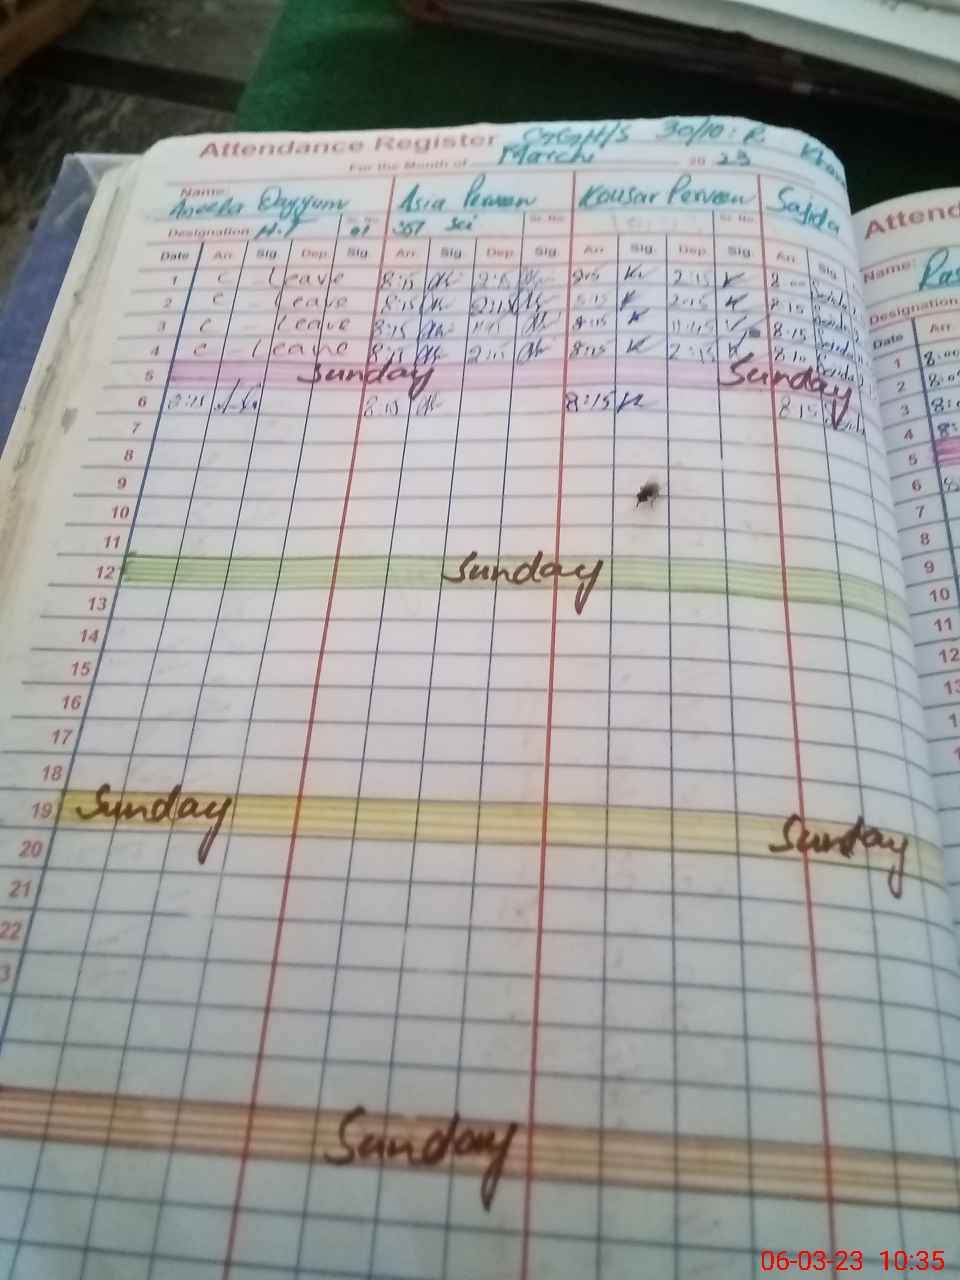 Attendance Register GGHS 30/10.R
For the Month of March 2023
Name: Aneela Qayyum Asia Perveen Kousar Perveen Sajida
Designation H.T Sr. No 01 SST Sci Sr. No Sr. No
Date Arr. Sig. Dep. Sig. Arr. Sig. Dep. Sig. Arr. Sig. Dep. Sig. Arr. Sig.
1 C - Leave 8:15 2:15 8:15 K 2:15 K 8
2 C - Leave 8:15 2:15 8:15 K 2:15 K 8:15
3 C - Leave 8:15 8:15 K 8:15
4 C - Leave 8:15 2:15 8:15 K 2:15 K 8
5 Sunday Sunday
6 8:15 8:15 K 8:15
7
8
9
10
11
12 Sunday
13
14
15
16
17
18
19 Sunday Sunday
20
21
22
3
Sunday
Attend
Name: Ras
Designation
Date Arr.
1 8:00
2 8:0
3 8:
4 8:
5
6 8
7
8
9
10
11
12
13
06-03-23 10:35